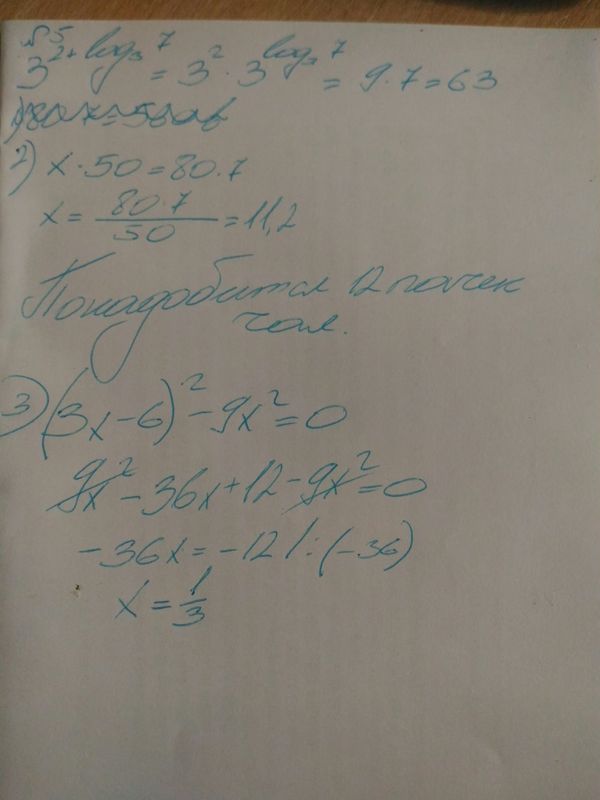 №5
3^{2+log₃7} = 3² · 3^{log₃7} = 9 · 7 = 63
2) x · 50 = 80 · 7
x = \frac{80 · 7}{50} = 11,2
Понадобится 12 пачек
чая.
3) (3x - 6)² - 9x² = 0
9x² - 36x + 12 - 9x² = 0
-36x = -12 | : (-36)
x = \frac{1}{3}